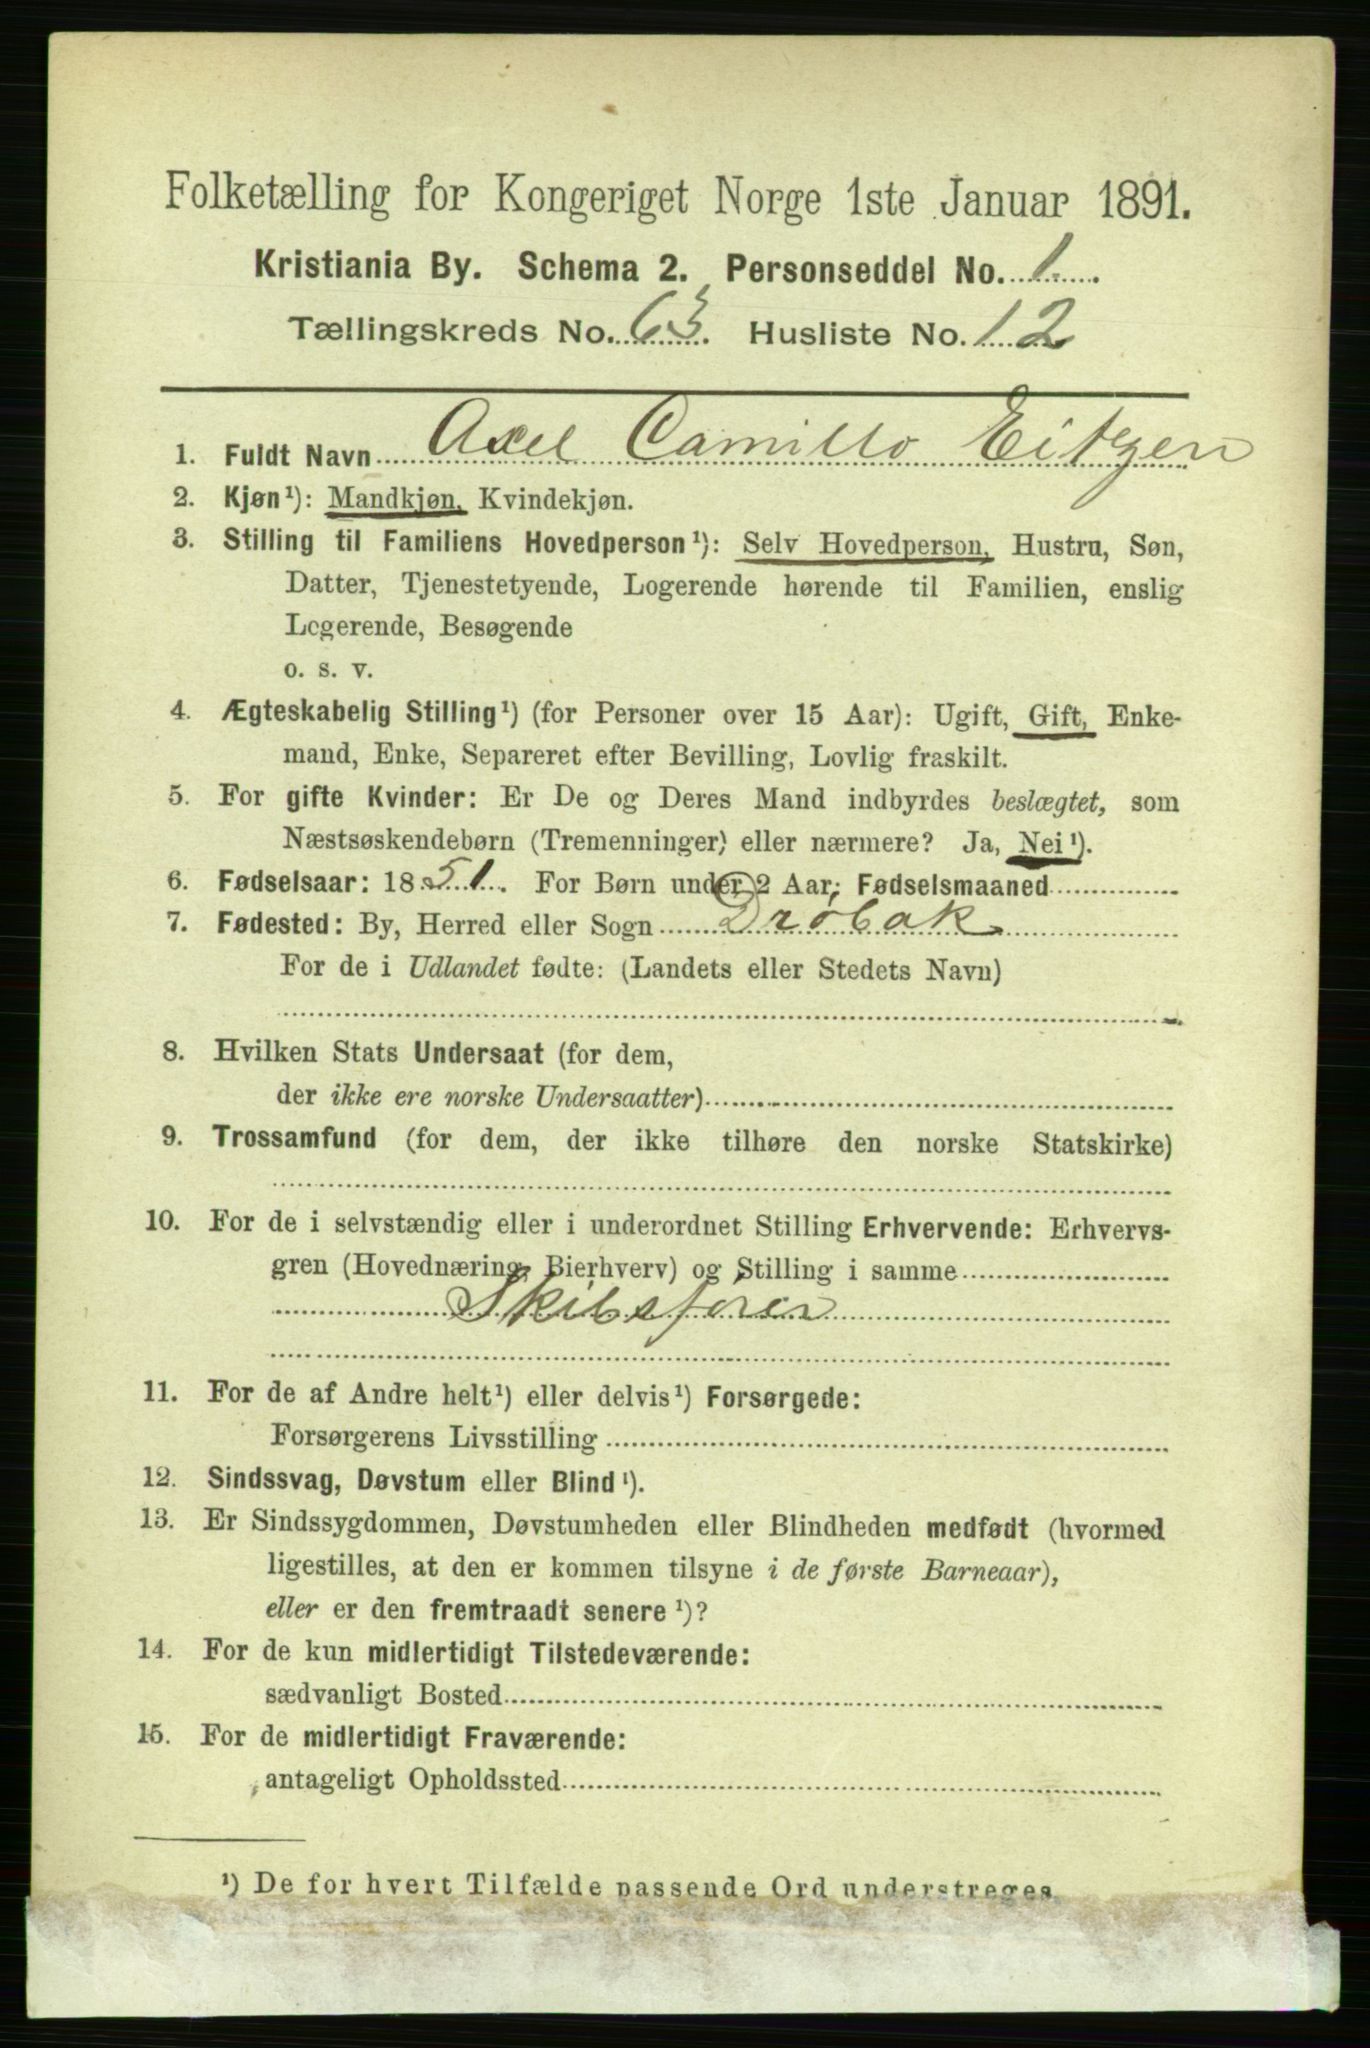 Folketælling for Kongeriget Norge 1ste Januar 1891.
Kristiania By. Schema 2. Personseddel No. 1.
Tællingskreds No. 63. Husliste No. 12
1. Fuldt Navn Axel Camillo Eitzen
2. Kjøn¹): Mandkjøn, Kvindekjøn.
3. Stilling til Familiens Hovedperson¹): Selv Hovedperson, Hustru, Søn,
Datter, Tjenestetyende, Logerende hørende til Familien, enslig
Logerende, Besøgende
o. s. v.
4. Ægteskabelig Stilling¹) (for Personer over 15 Aar): Ugift, Gift, Enke-
mand, Enke, Separeret efter Bevilling, Lovlig fraskilt.
5. For gifte Kvinder: Er De og Deres Mand indbyrdes beslægtet, som
Næstsøskendebørn (Tremenninger) eller nærmere? Ja, Nei¹).
6. Fødselsaar: 1851. For Børn under 2 Aar, Fødselsmaaned
7. Fødested: By, Herred eller Sogn Drøbak
For de i Udlandet fødte: (Landets eller Stedets Navn)
8. Hvilken Stats Undersaat (for dem,
der ikke ere norske Undersaatter)
9. Trossamfund (for dem, der ikke tilhøre den norske Statskirke)
10. For de i selvstændig eller i underordnet Stilling Erhvervende: Erhvervs-
gren (Hovednæring, Bierhverv) og Stilling i samme
Skibsfører
11. For de af Andre helt¹) eller delvis¹) Forsørgede:
Forsørgerens Livsstilling
12. Sindssvag, Døvstum eller Blind¹).
13. Er Sindssygdommen, Døvstumheden eller Blindheden medfødt (hvormed
ligestilles, at den er kommen tilsyne i de første Barneaar),
eller er den fremtraadt senere¹)?
14. For de kun midlertidigt Tilstedeværende:
sædvanligt Bosted
15. For de midlertidigt Fraværende:
antageligt Opholdssted
¹) De for hvert Tilfælde passende Ord understreges.